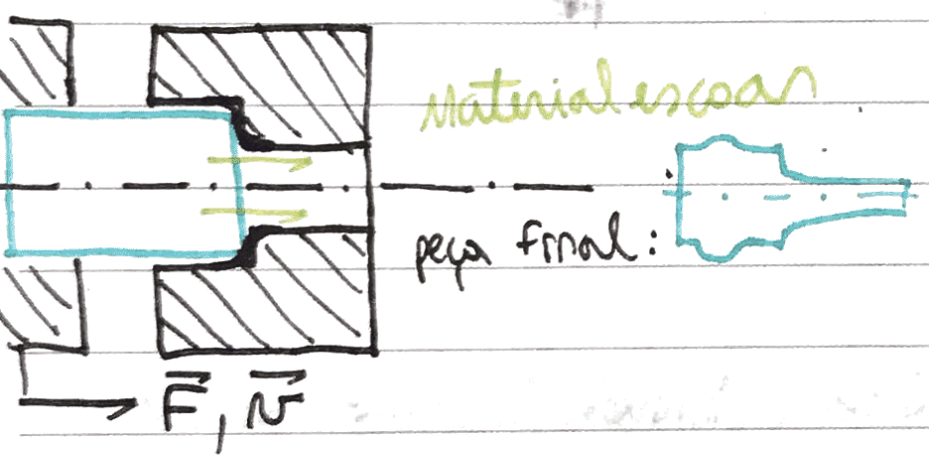 Material escoar
peça final:
F, v